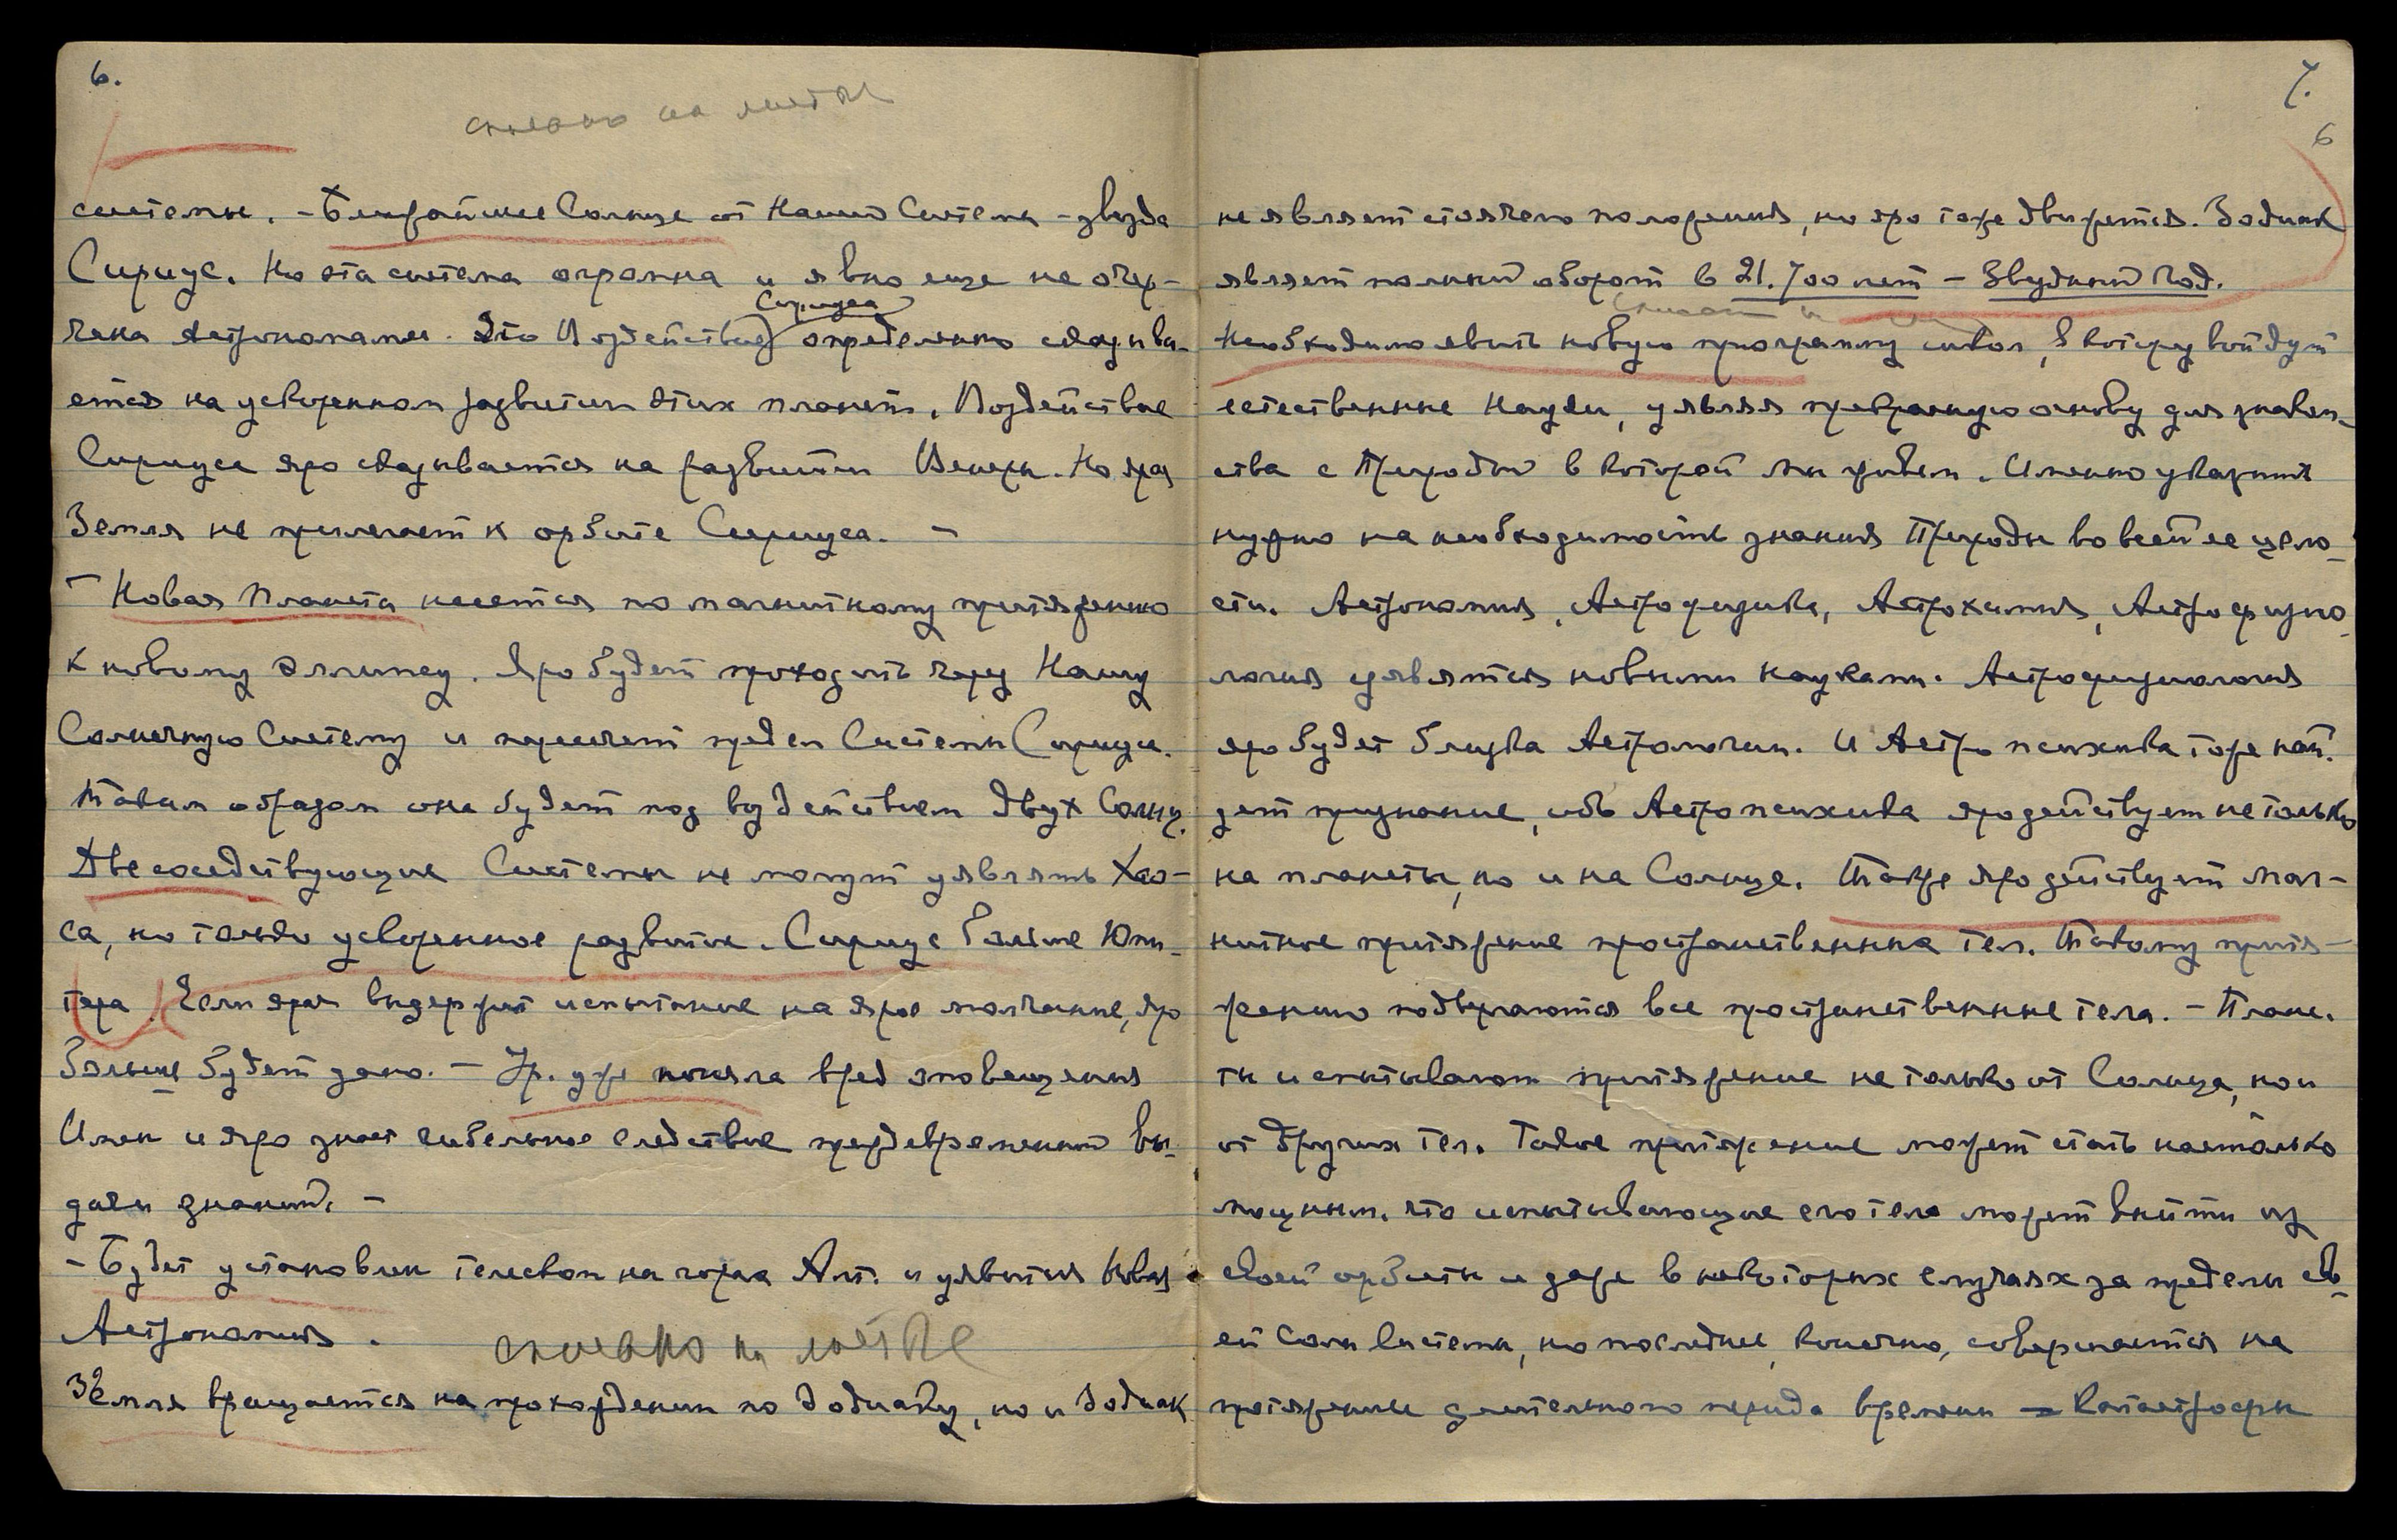 6.
системы. - Ближайшее Солнце от Нашей Системы - звезда
Сириус. Но эта система огромна и явно еще не очер-
чена Астрономами. Это Воздействие Сириуса определенно сказыва-
ется на ускоренном развитии этих планет. Воздействие
Сириуса яро сказывается на развитии Венеры. Но яра
Земля не прилегает к орбите Сириуса. -
- Новая Планета несется по магнитному притяжению
к новому эллипсу. Яро будет проходить через Нашу
Солнечную Систему и пересечет предел Системы Сириуса.
Таким образом она будет под воздействием двух Солнц.
Две соседствующие Системы не могут уявлять Хао-
са, но только ускоренное развитие. Сириус больше Юпи-
тера. Если ярая выдержит испытание на ярое молчание, яро
больше будет дано. - Ур. уже поняла вред оповещения
Имен и яро знает гибельное следствие преждевременной вы-
дачи знаний. -
- Будет установлен телескоп на горах Алт. и уявится Новая
Астрономия.
Земля вращается на прохождении по Зодиаку, но и Зодиак
7.
6
не являет стоячего положения, но яро тоже движется. Зодиак
являет полный оборот в 21.700 лет - Звездный Год.
Необходимо явить новую программу школ, в котору войдут
естественные Науки, уявляя прекрасную основу для знаком-
ства с Природой в которой мы живем. Именно указать
нужно на необходимость знания Природы во всей ее цело-
сти. Астрономия, Астрофизика, Астрохимия, Астрофизио-
логия уявятся новыми науками. Астрофизиология
яро будет близка Астрологии. И Астропсихика тоже най-
дет признание, ибо Астропсихика яро действует не только
на планеты, но и на Солнце. Также яро действует маг-
нитное притяжение пространственных тел. Такому притя-
жению подвергаются все пространственные тела. - Плане-
ты испытывают притяжение не только от Солнца, но и
от других тел. Такое притяжение может стать настолько
мощным, что испытывающие его тела может выйти из
своей орбиты и даже в некоторых случаях за пределы сво-
ей Солн Системы, но последнее, конечно, совершается на
протяжении длительного периода времени - Катастрофы